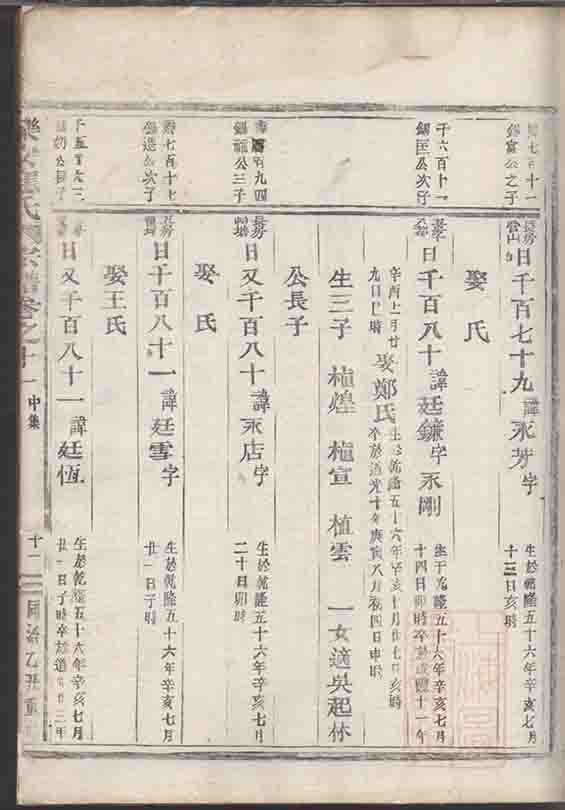 錫富公之子
日千百七十九 諱永芳字
生於乾隆五十六年辛亥七月
十三日亥時
娶 氏
千六百十一
錫匡公次子
日千百八十 諱廷鐮字永剛
生于乾隆五十六年辛亥七月
十四日卯時卒於咸豐十一年
辛酉十一月廿
九日巳時
娶鄭氏
生於乾隆五十六年辛亥十月廿七日亥時
卒於道光十年庚寅八月初四日申時
生三子 植煌 植宣 植雲 一女適吳起林
公長子
錫龍公三子
日又千百八十 諱永店字
生於乾隆五十六年辛亥七月
二十日卯時
娶 氏
壽七百十七
錫進公次子
日千百八十一 諱廷雪字
生於乾隆五十六年辛亥七月
廿一日子時
娶王氏
日又千百八十一 諱廷恆
生於乾隆五十六年辛亥七月
廿一日子時卒於道光廿三年
氏宗譜卷之十一
中集
十一
同治乙丑重